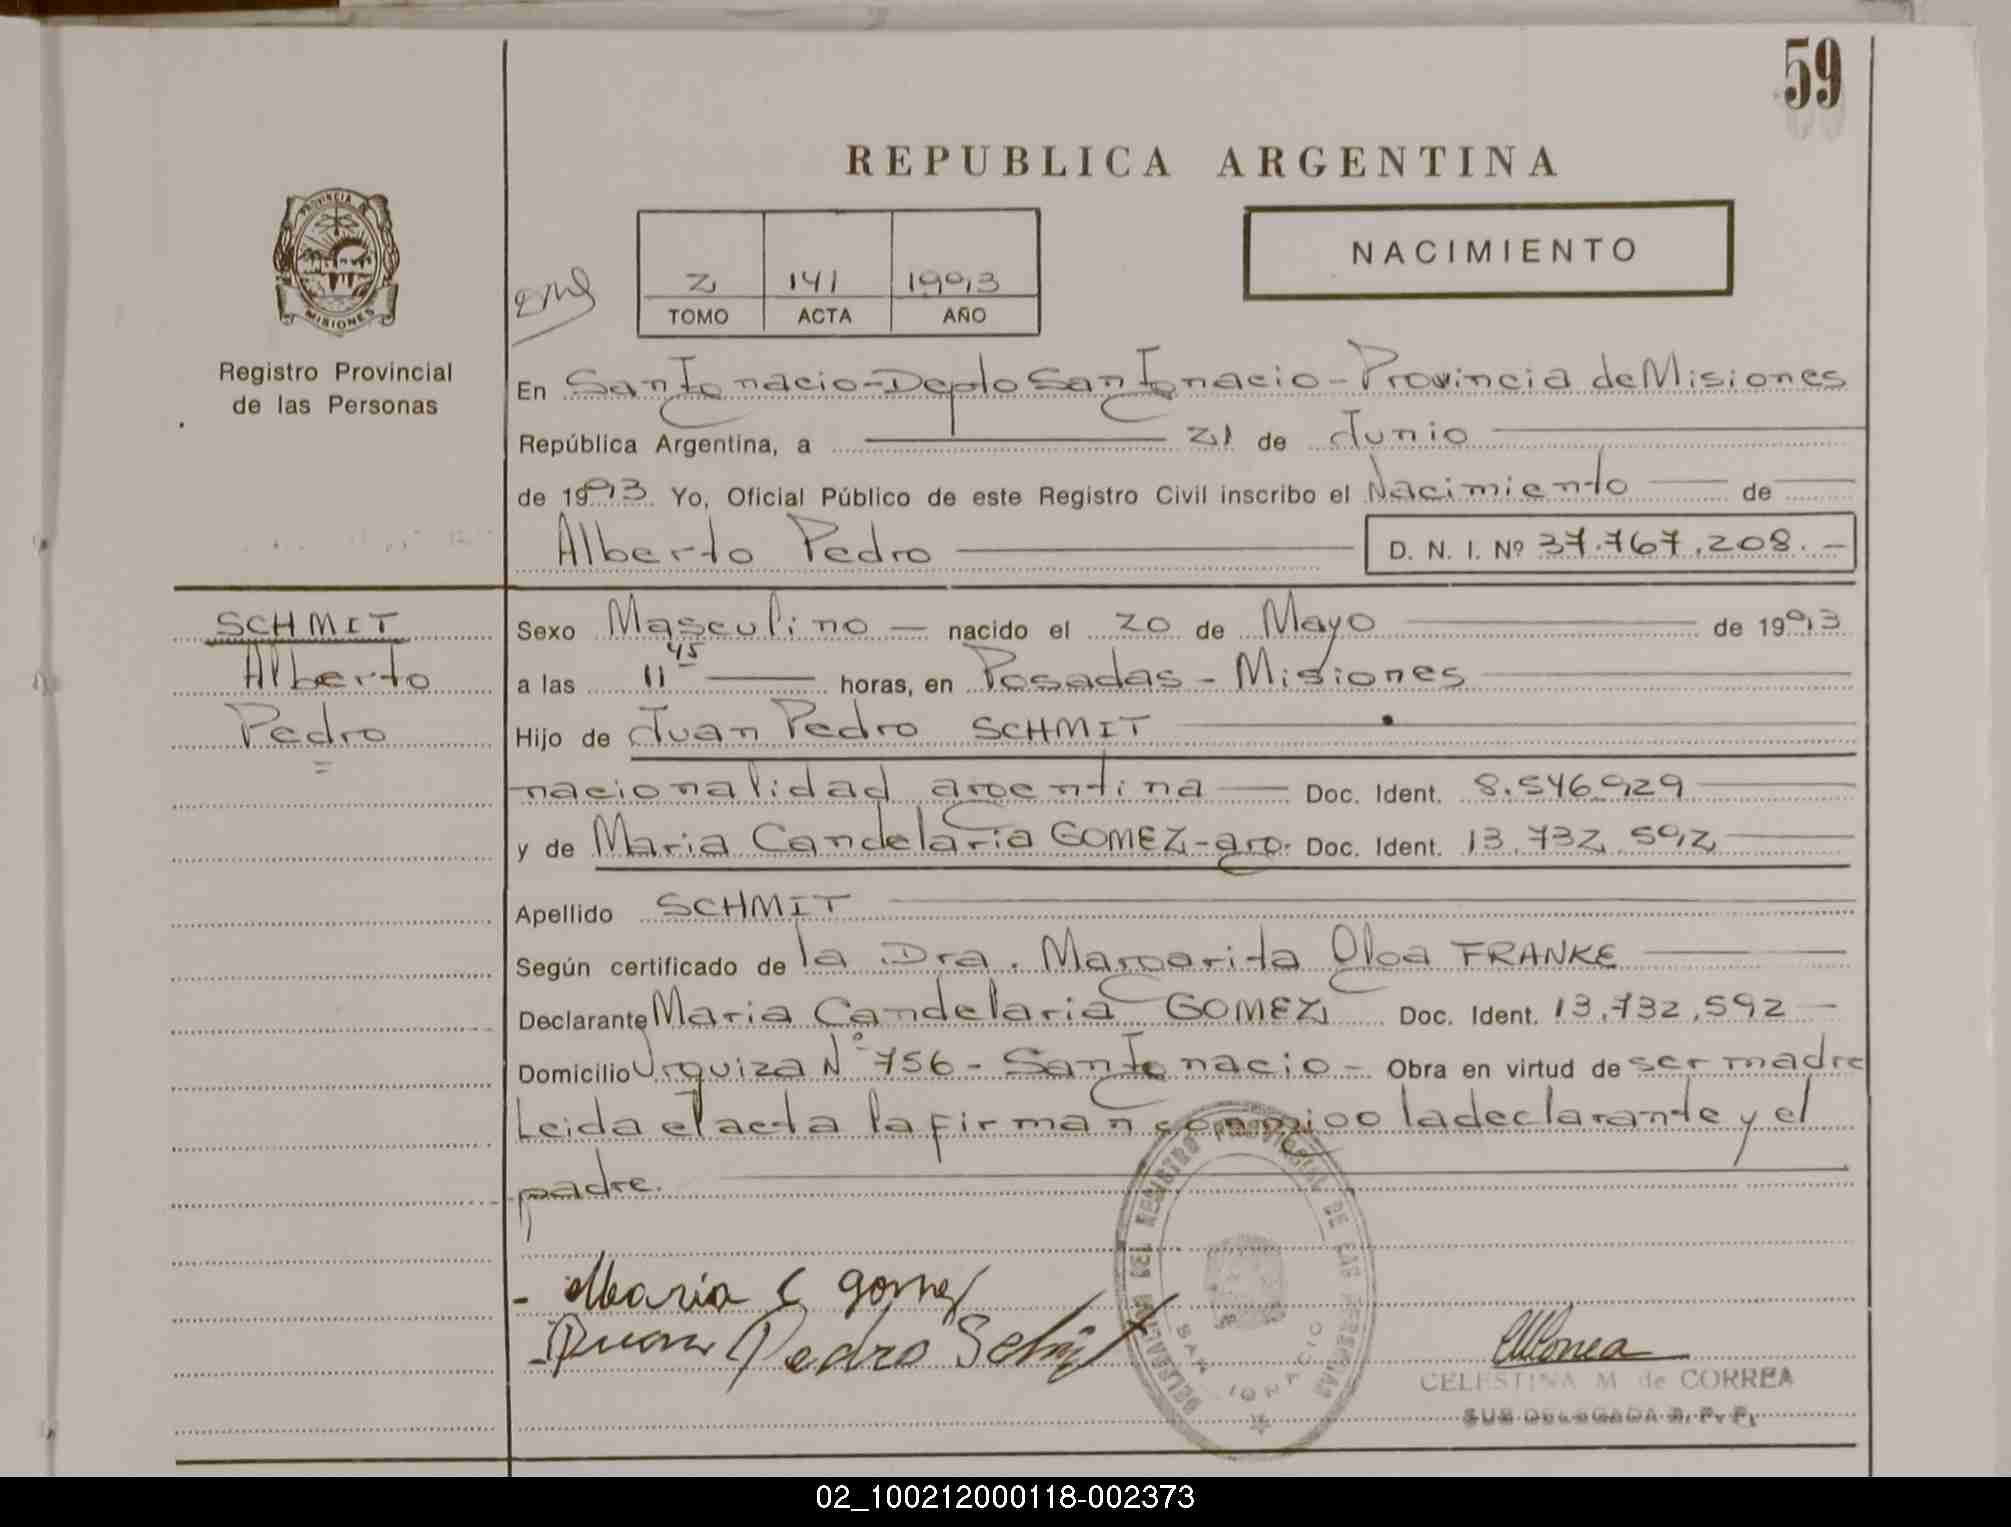 59
REPUBLICA ARGENTINA
NACIMIENTO
2 141 1993
TOMO ACTA AÑO
PROVINCIA DE
MISIONES
Registro Provincial
de las Personas
En San Ignacio - Depto San Ignacio - Provincia de Misiones
República Argentina, a 21 de Junio
de 1993 Yo, Oficial Público de este Registro Civil inscribo el Nacimiento de
Alberto Pedro D. N. I. Nº 37.767.208.-
SCHMIT
Alberto
Pedro
Sexo Masculino nacido el 20 de Mayo de 1993
a las 11 45 horas, en Posadas - Misiones
Hijo de Juan Pedro SCHMIT
nacionalidad argentina Doc. Ident. 8.546.929
y de Maria Candelaria GOMEZ - arg. Doc. Ident. 13.732.592
Apellido SCHMIT
Según certificado de la Dra. Margarita Olga FRANKE
Declarante Maria Candelaria GOMEZ Doc. Ident. 13.732.592
Domicilio Urquiza Nº 756 - San Ignacio - Obra en virtud de ser madre
Leida el acta la firman conmigo la declarante y el
padre.
- Maria C gomez
- Juan Pedro Schmit
REGISTRO PROVINCIAL DE LAS PERSONAS
SAN IGNACIO
CELESTINA M de CORREA
SUB DELEGADA R. P. P.
02_100212000118-002373